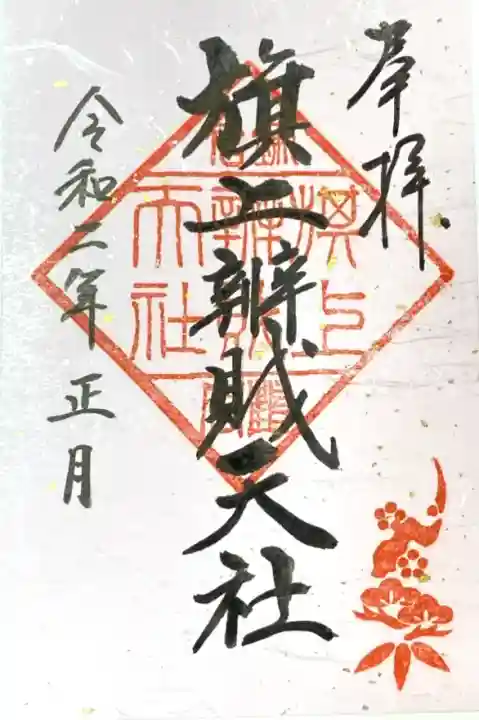 奉拝
旗上辨財天社
令和二年正月
旗上
辨
天社